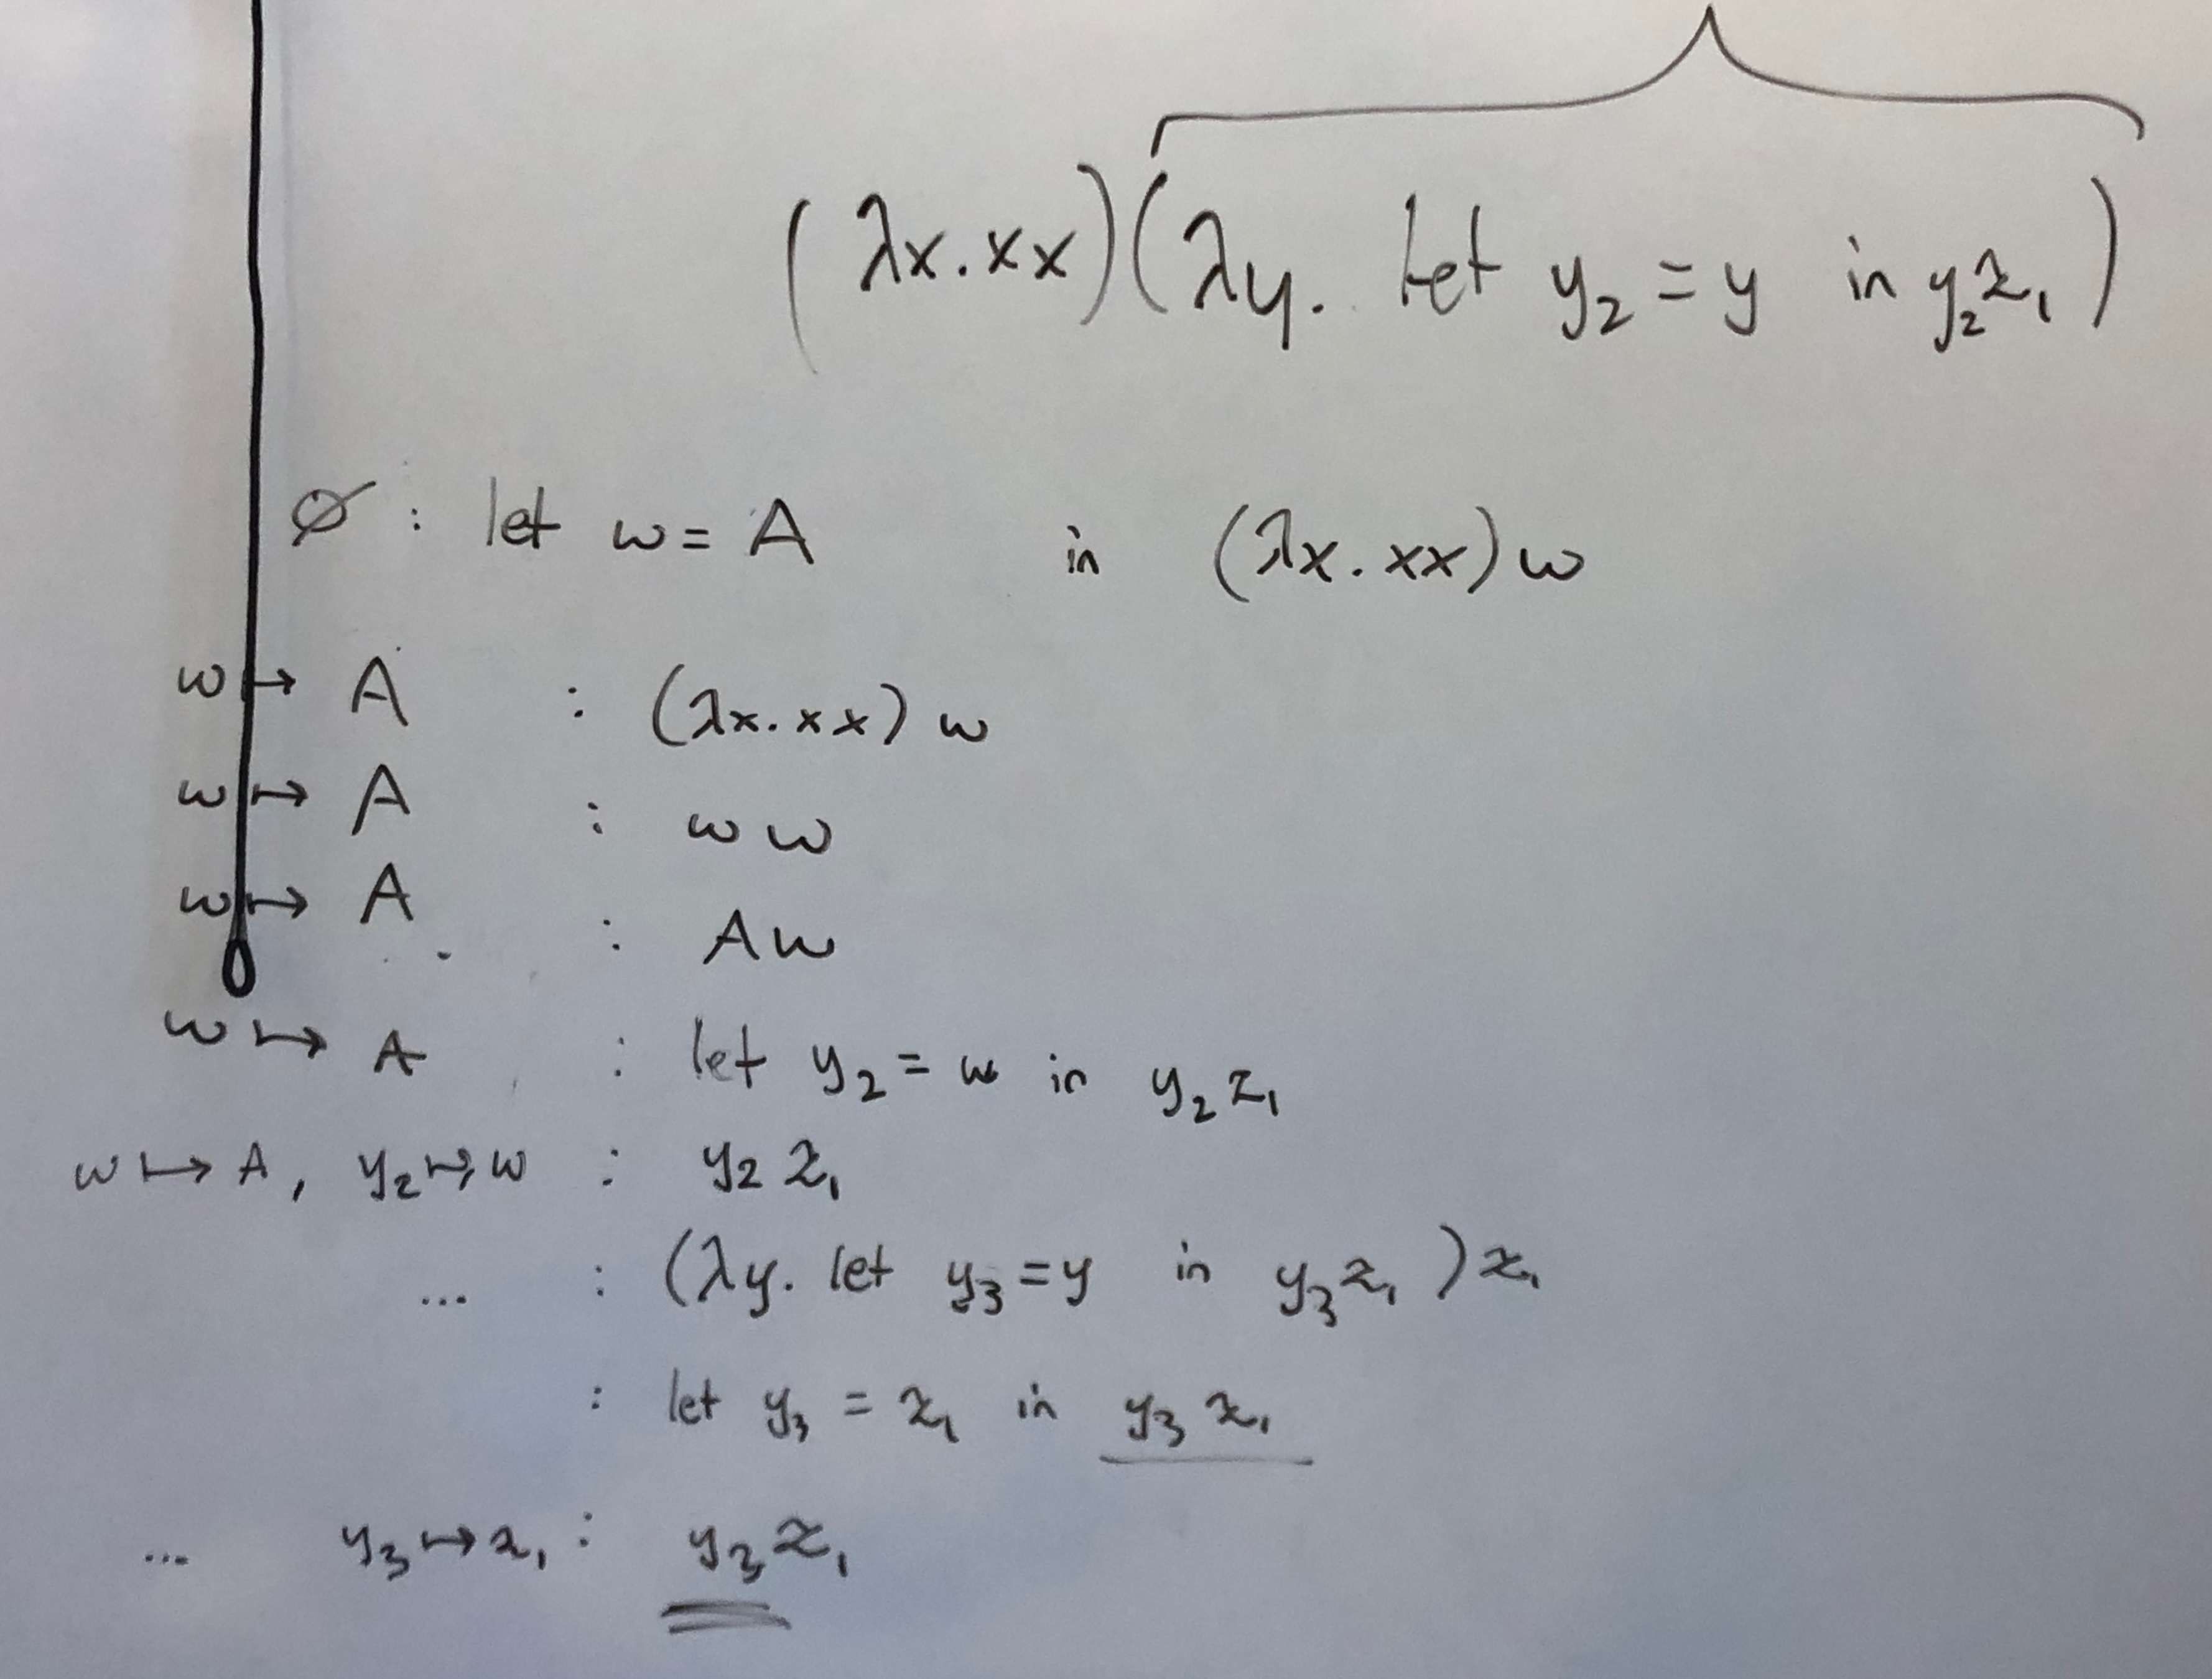 (λx.xx)(λy. let y₂ = y in y₂z₁)
∅ : let w = A in (λx.xx)w
w ↦ A : (λx.xx) w
w ↦ A : w w
w ↦ A : A w
w ↦ A : let y₂ = w in y₂ z₁
w ↦ A, y₂ ↦ w : y₂ z₁
... : (λy. let y₃ = y in y₃ z₁) z₁
: let y₃ = z₁ in y₃ z₁
... y₃ ↦ z₁ : y₃ z₁